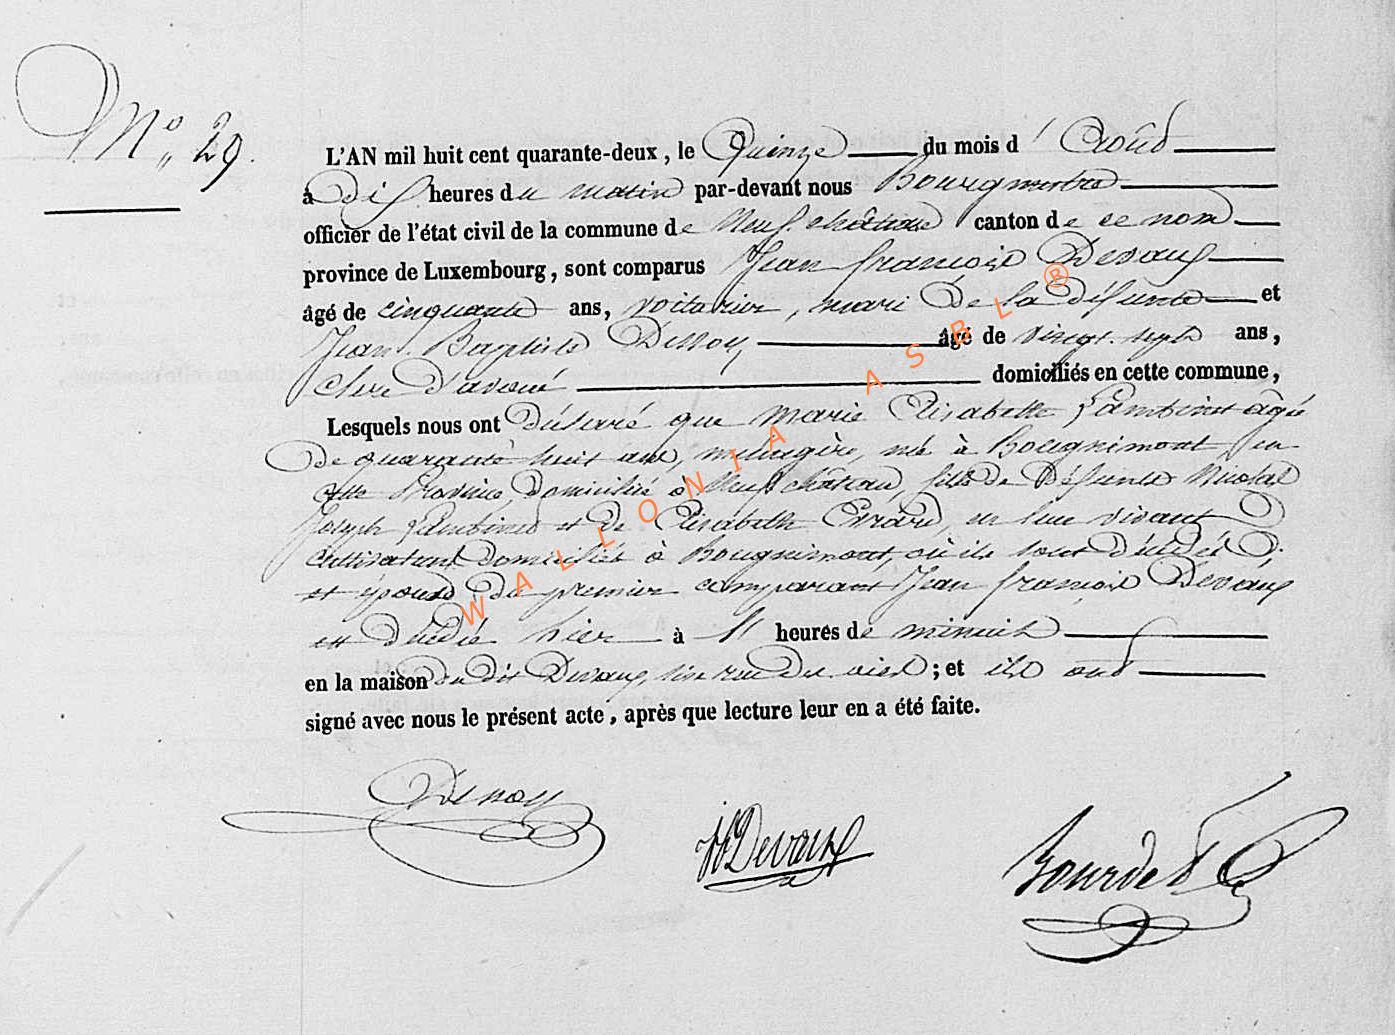 N° 29.
L'AN mil huit cent quarante-deux, le Quinze du mois d'Août
à dix heures du matin par-devant nous Bourgmestre
officier de l'état civil de la commune de Neufchâteau canton de ce nom
province de Luxembourg, sont comparus Jean françois Devaux
âgé de cinquante ans, voiturier, mari de la défunte et
Jean Baptiste Dessoy âgé de vingt-sept ans,
clerc d'avoué domiciliés en cette commune,
Lesquels nous ont déclaré que Marie Elisabeth Lambinet âgée
de quarante huit ans, ménagère, née à Bougnimont, en
cette Province, domiciliée à Neufchâteau, fille de défunts Nicolas
Joseph Lambinet et de Elisabeth Evrard, en leur vivant
cultivateurs domiciliés à Bougnimont, où ils sont décédés
et épouse du premier comparant Jean françois Devaux
est décédée hier à 11 heures de minuit
en la maison du dit Devaux, sise rue du ; et ils ont
signé avec nous le présent acte, après que lecture leur en a été faite.
Dessoy
JF Devaux
Bourdet
WALLONIA ASBL ®